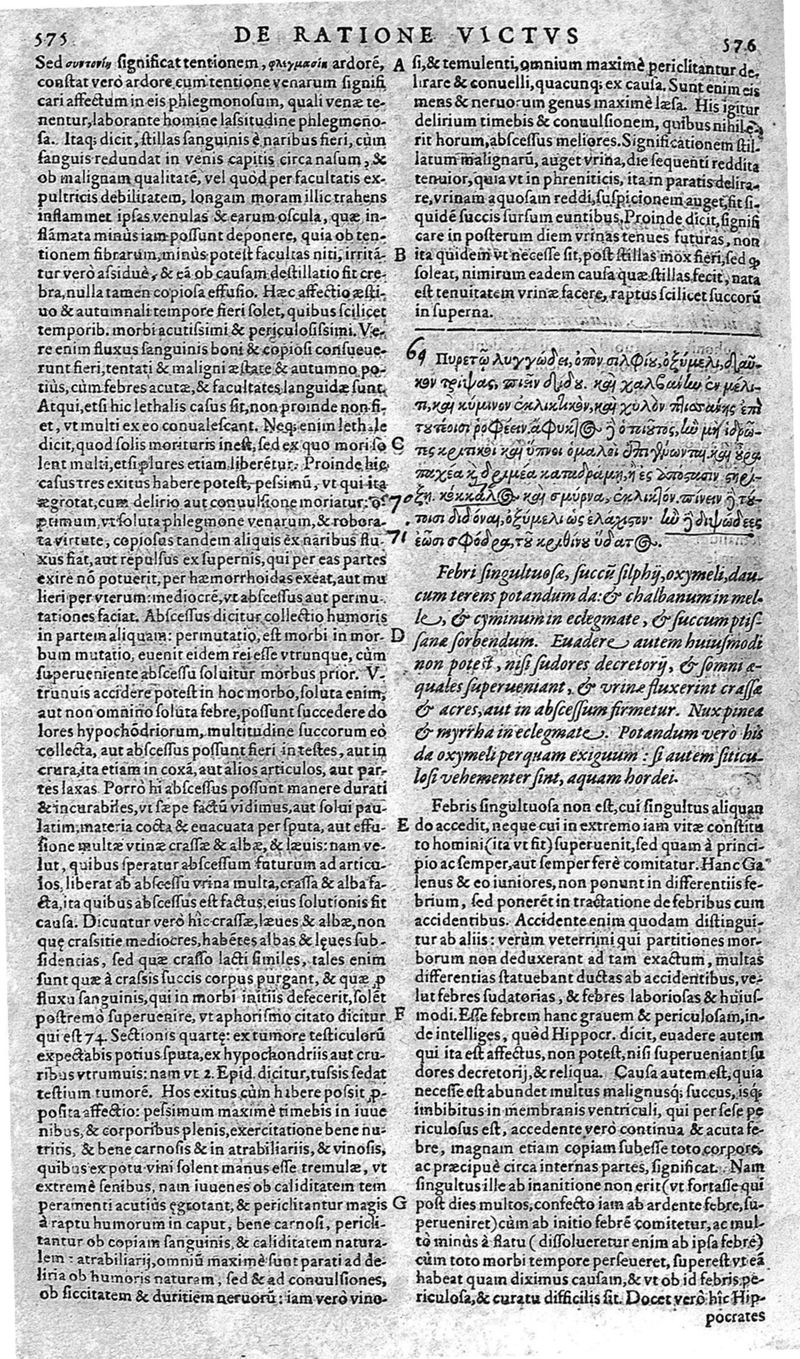 575
DE RATIONE VICTVS
576
Sed συντονίη significat tentionem, φλεγμασίη ardorē,
constat verò ardore cum tentione venarum signifi
cari affectum in eis phlegmonosum, quali venæ te-
nentur, laborante homine lassitudine phlegmono-
sa. Itaq; dicit, stillas sanguinis è naribus fieri, cùm
sanguis redundat in venis capitis circa nasum, &
ob malignam qualitatē, vel quòd per facultatis ex-
pultricis debilitatem, longam moram illic trahens
inflammet ipsas venulas & earum oscula, quæ in-
flāmata minùs iam possunt deponere, quia ob ten-
tionem fibrarum, minus potest facultas niti, irritā-
tur verò assiduè, & eā ob causam destillatio fit cre-
bra, nulla tamen copiosa effusio. Hæc affectio æsti-
uo & autumnali tempore fieri solet, quibus scilicet
temporib. morbi acutissimi & periculosissimi. Ve-
re enim fluxus sanguinis boni & copiosi consueue-
runt fieri, tentati & maligni æstate & autumno po-
tiùs, cùm febres acutæ, & facultates languidæ sunt.
Atqui, etsi hic lethalis casus sit, non proinde non fi-
et, vt multi ex eo conualescant. Neq; enim lethale
dicit, quod solis morituris inest, sed ex quo mori so
lent multi, etsi plures etiam liberētur. Proinde hic
casus tres exitus habere potest, pessimū, vt qui ita
ægrotat, cum delirio aut conuulsione moriatur: o-
ptimum, vt soluta phlegmone venarum, & robora-
ta virtute, copiosus tandem aliquis ex naribus flu-
xus fiat, aut repulsus ex supernis, qui per eas partes
exire nō potuerit, per hæmorrhoidas exeat, aut mu
lieri per vterum: mediocrē, vt abscessus aut permu-
tationes faciat. Abscessus dicitur collectio humoris
in partem aliquam: permutatio, est morbi in mor-
bum mutatio, euenit eidem rei esse vtrunque, cùm
superueniente abscessu soluitur morbus prior. V-
trunuis accidere potest in hoc morbo, soluta enim,
aut non omnino soluta febre, possunt succedere do
lores hypochōdriorum, multitudine succorum eo
collecta, aut abscessus possunt fieri in testes, aut in
crura, ita etiam in coxā, aut alios articulos, aut par-
tes laxas. Porrò hi abscessus possunt manere durati
& incurabiles, vt sæpe factū vidimus, aut solui pau-
latim, materia cocta & euacuata per sputa, aut effu-
sione multæ vrinæ crassæ & albæ, & læuis: nam ve-
lut, quibus speratur abscessum futurum ad articu-
los, liberat ab abscessu vrina multa, crassa & alba fa-
cta, ita quibus abscessus est factus, eius solutionis fit
causa. Dicuntur verò hîc crassæ, læues & albæ, non
quę crassitie mediocres, habētes albas & lęues sub-
sidencias, sed quæ crasso lacti similes, tales enim
sunt quæ à crassis succis corpus purgant, & quæ ꝓ
fluxu sanguinis, qui in morbi initiis defecerit, solēt
postremò superuenire, vt aphorismo citato dicitur
qui est 74. Sectionis quartę: ex tumore testiculorū
expectabis potius sputa, ex hypochondriis aut cru-
ribus vtrumuis: nam vt 2. Epid. dicitur, tussis sedat
testium tumorē. Hos exitus cùm habere possit ꝓ-
posita affectio: pessimum maximè timebis in iuue
nibus, & corporibus plenis, exercitatione bene nu-
tritis, & bene carnosis & in atrabiliariis, & vinosis,
quibus ex potu vini solent manus esse tremulæ, vt
extremè senibus, nam iuuenes ob caliditatem tem
peramenti acutiùs ęgrotant, & periclitantur magis
à raptu humorum in caput, bene carnosi, pericli-
tantur ob copiam sanguinis, & caliditatem natura-
lem: atrabiliarij, omniū maximè sunt parati ad de-
liria ob humoris naturam, sed & ad conuulsiones,
ob siccitatem & duritiem neruorū: iam verò vino-
A
B
C
D
E
F
G
si, & temulenti, omnium maximè periclitantur de-
lirare & conuelli, quacunq; ex causa. Sunt enim eis
mens & neruorum genus maximè læsa. His igitur
delirium timebis & conuulsionem, quibus nihil e-
rit horum, abscessus meliores. Significationem stil-
latum malignarū, auget vrina, die sequenti reddita
tenuior, quia vt in phreniticis, ita in paratis delira-
re, vrinam aquosam reddi, suspicionem auget, fit si-
quidē succis sursum euntibus. Proinde dicit, signifi
care in posterum diem vrinas tenues futuras, non
ita quidem vt necesse sit, post stillas mox fieri, sed ꝙ
soleat, nimirum eadem causa quæ stillas fecit, nata
est tenuitatem vrinæ facere, raptus scilicet succorū
in superna.
69 Πυρετῷ λυγγώδει, ὀπὸν σιλφίου, ὀξύμελι, δαῦ-
κον τρίψας, πιεῖν δίδου. καὶ χαλβάνην ἐν μέλι-
τι, καὶ κύμινον ἐκλικτικὸν, καὶ χυλὸν πτισάνης ἐπὶ
τουτέοισι ῥοφέειν. ἄφυκτος ἢ ὁ τοιοῦτος, ἢν μὴ ἱδρῶ-
τες κριτικοὶ καὶ ὕπνοι ὁμαλοὶ ἐπιγένωνται, καὶ οὖρα
παχέα καὶ δριμέα καταδράμῃ, ἢ ἐς ἀπόστασιν στηρί-
70 ξῃ. κόκκαλος καὶ σμύρνα, ἐκλικτόν. πίνειν ἢ του-
71 τοισι διδόναι, ὀξύμελι ὡς ἐλάχιστον. ἢν ἢ διψώδεες
ἔωσι σφόδρα, τοῦ κριθίνου ὕδατος.
Febri singultuosæ, succū silphij, oxymeli, dau-
cum terens potandum da: & chalbanum in mel-
le, & cyminum in eclegmate, & succum ptis-
sanæ sorbendum. Euadere autem huiusmodi
non potest, nisi sudores decretorij, & somni æ-
quales superueniant, & vrinæ fluxerint crassæ
& acres, aut in abscessum firmetur. Nux pinea
& myrrha in eclegmate. Potandum verò his
da oxymeli perquam exiguum: si autem siticu-
losi vehementer sint, aquam hordei.
Febris singultuosa non est, cui singultus aliquan
do accedit, neque cui in extremo iam vitæ constitu
to homini (ita vt fit) superuenit, sed quam à princi-
pio ac semper, aut semper ferè comitatur. Hanc Ga
lenus & eo iuniores, non ponunt in differentiis fe-
brium, sed ponerēt in tractatione de febribus cum
accidentibus. Accidente enim quodam distingui-
tur ab aliis: verùm veterrimi qui partitiones mor-
borum non deduxerant ad tam exactum, multas
differentias statuebant ductas ab accidentibus, ve-
lut febres sudatorias, & febres laboriosas & huius-
modi. Esse febrem hanc grauem & periculosam, in-
de intelliges, quòd Hippocr. dicit, euadere autem
qui ita est affectus, non potest, nisi superueniant su
dores decretorij, & reliqua. Causa autem est, quia
necesse est abundet multus malignusq; succus, isq;
imbibitus in membranis ventriculi, qui per se se pe
riculosus est, accedente verò continua & acuta fe-
bre, magnam etiam copiam subesse toto corpore,
ac præcipuè circa internas partes, significat. Nam
singultus ille ab inanitione non erit (vt fortasse qui
post dies multos, confecto iam ab ardente febre, su-
perueniret) cùm ab initio febrē comitetur, ac mul-
tò minùs à flatu (dissolueretur enim ab ipsa febre)
cùm toto morbi tempore perseueret, superest vt eā
habeat quam diximus causam, & vt ob id febris pe-
riculosa, & curatu difficilis sit. Docet verò hîc Hip-
pocrates